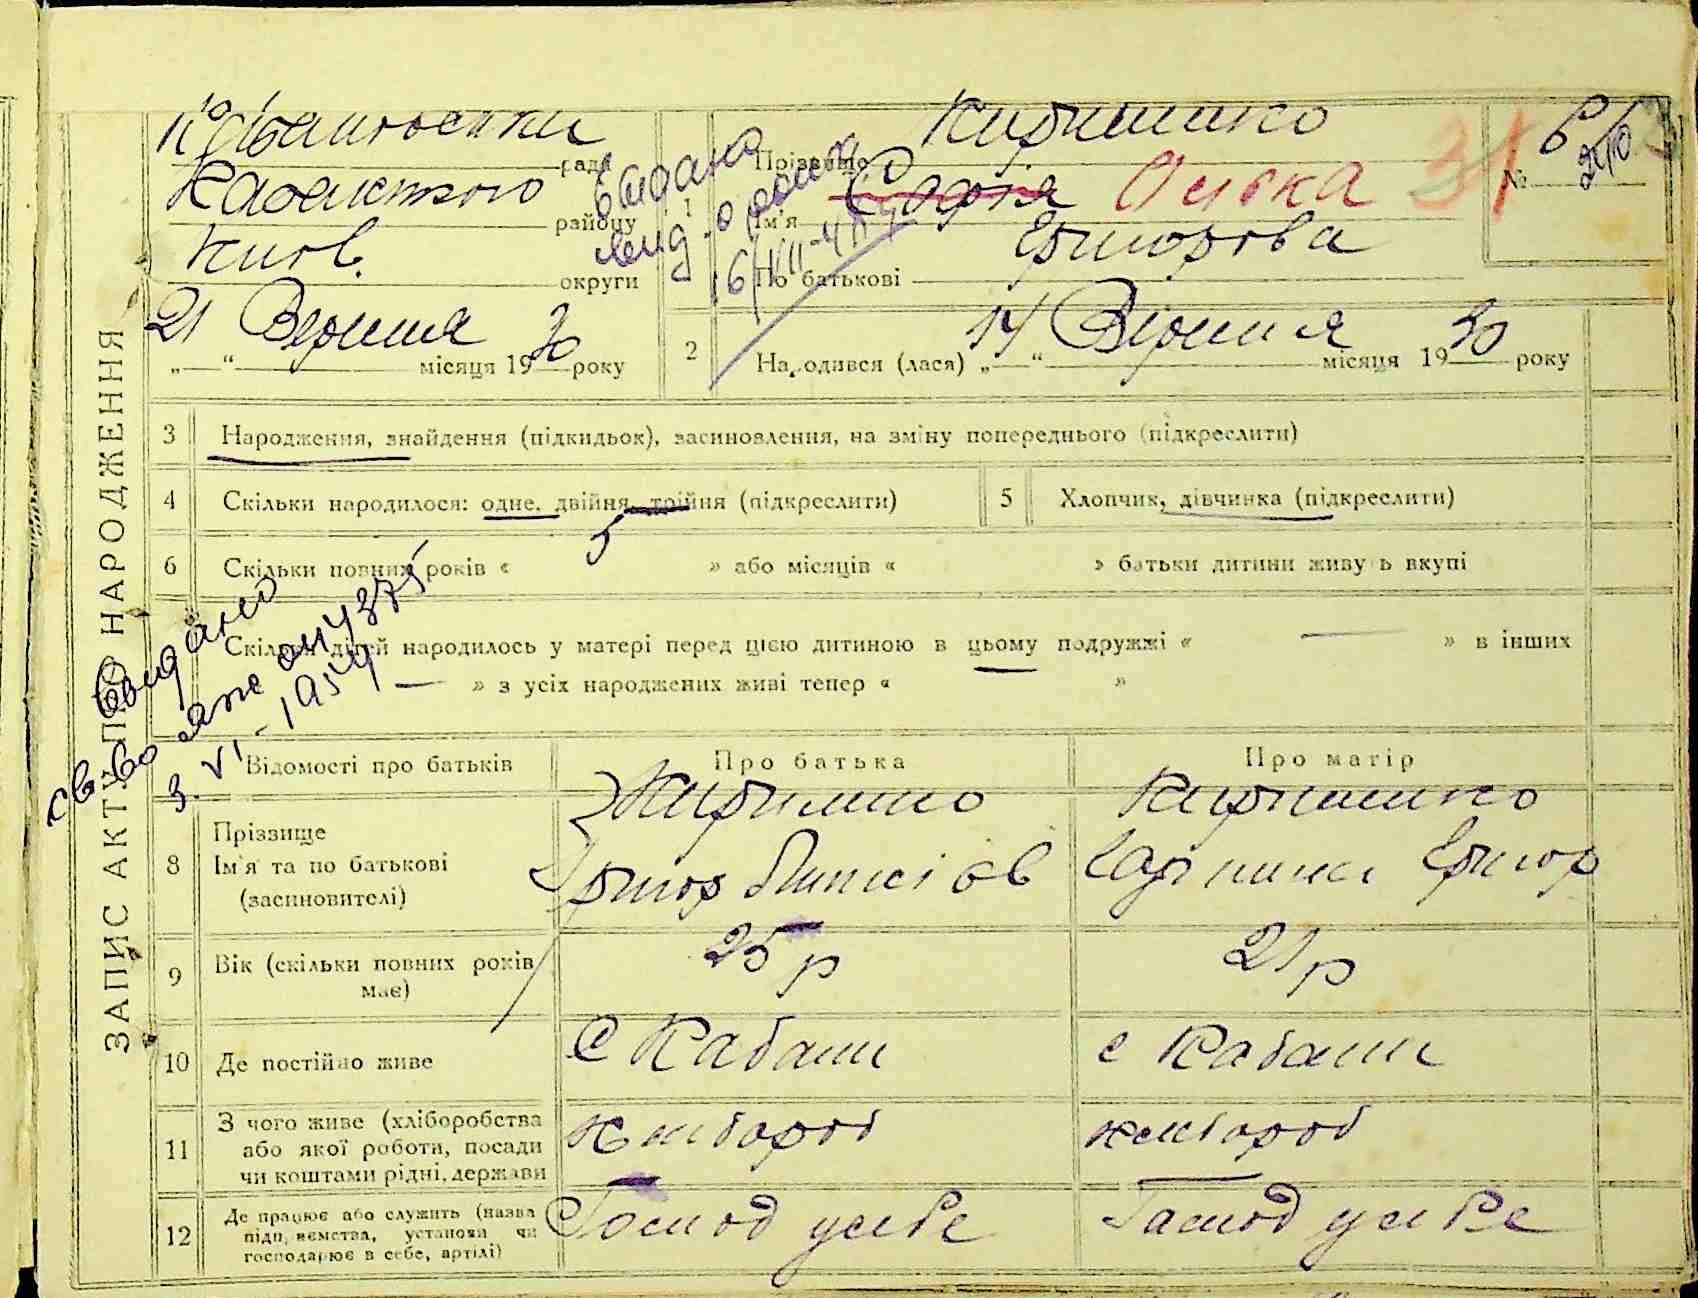 ЗАПИС АКТУ ПРО НАРОДЖЕННЯ
Кабанської ради
Кабанського району
Київ. округи
21 Вересня місяця 1930 року
1
Прізвище Кириленко
Ім'я Софія Ольга
По батькові Григорова
31
№
2 Народився (лася) „14“ Вересня місяця 1930 року
3 Народження, знайдення (підкидьок), засиновлення, на зміну попереднього (підкреслити)
4 Скільки народилося: одне, двійня, трійня (підкреслити)
5 Хлопчик, дівчинка (підкреслити)
6 Скільки повних років « 5 » або місяців « » батьки дитини живуть вкупі
Скільки дітей народилось у матері перед цією дитиною в цьому подружжі « — » в інших
— » з усіх народжених живі тепер « »
Видано
3. VI - 1954
Відомості про батьків
Про батька
Про матір
8 Прізвище
Ім'я та по батькові
(засиновителі)
Кириленко
Григор
Кириленко
Григор
9 Вік (скільки повних років має)
25 р
21 р
10 Де постійно живе
с Кабани
с Кабани
11 З чого живе (хліборобства або якої роботи, посади чи коштами рідні, держави
хлібороб
хлібороб
12 Де працює або служить (назва підприємства, установи чи господарює в себе, артілі)
Господ у себе
Господ у себе